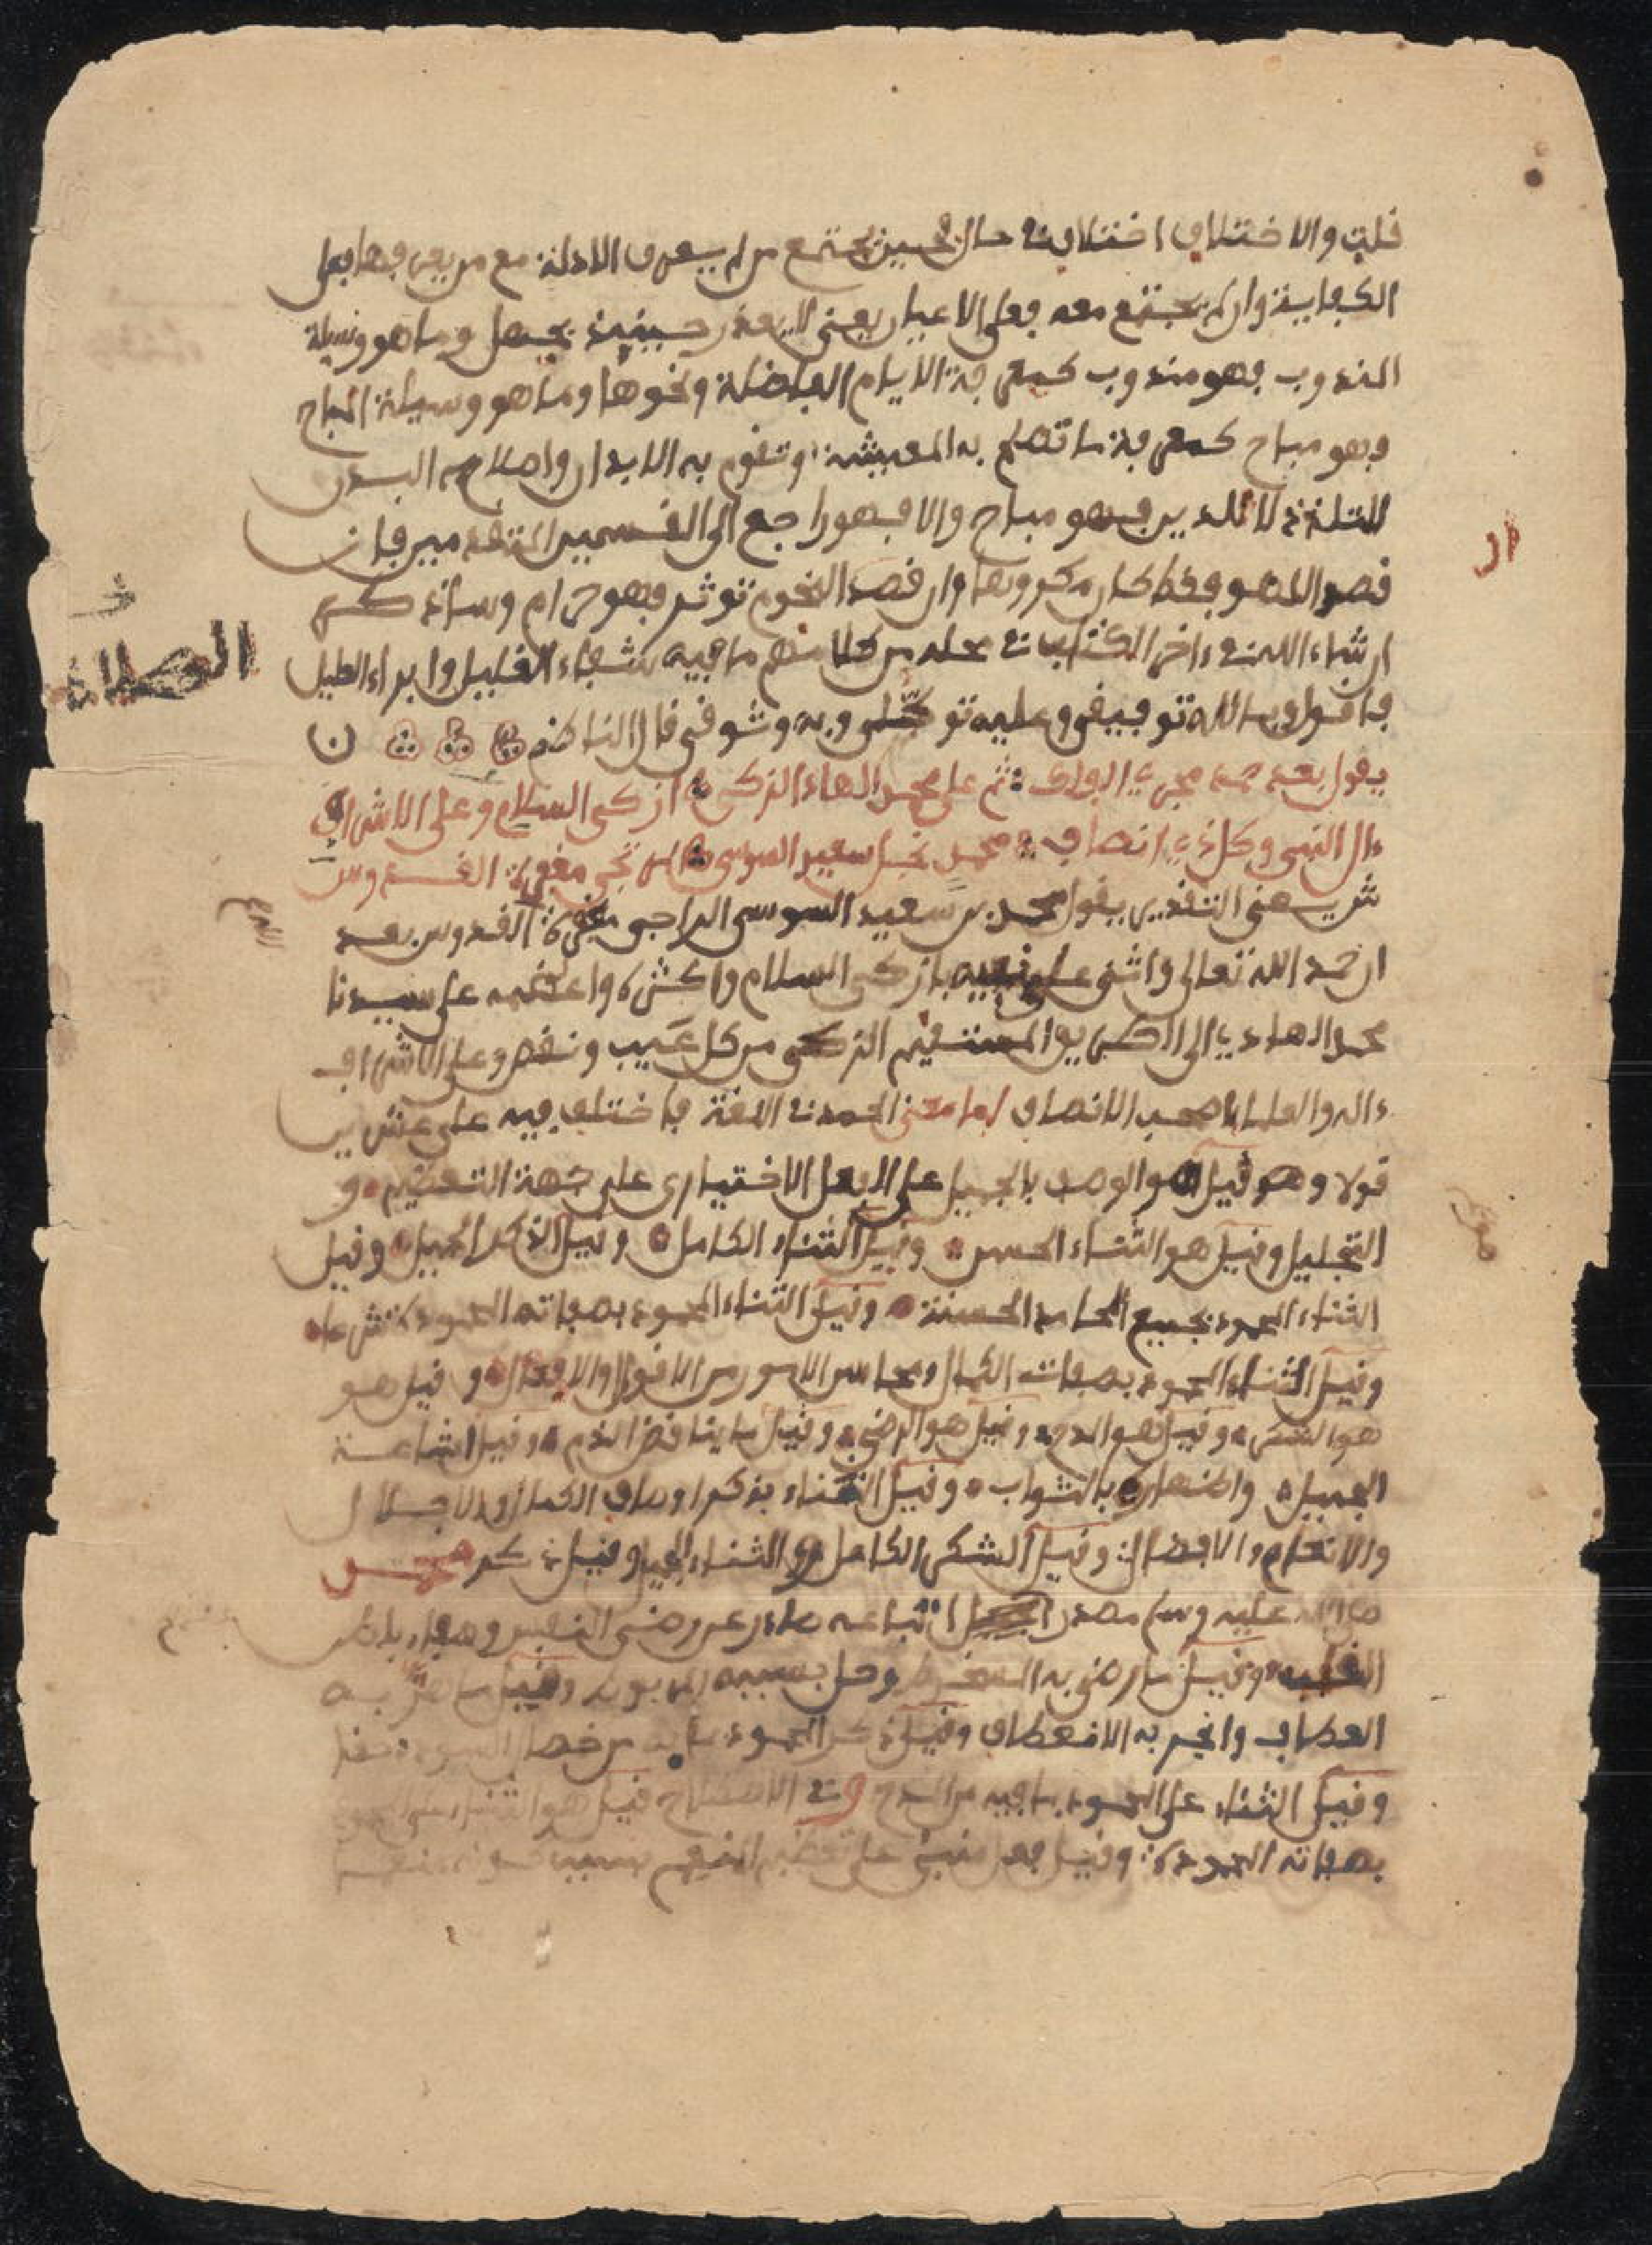 قلت والاختلاف اختلاف في حال فحين يجتمع من لم يعرف الادلة مع من يعرفها فعلى
الكفاية وان لم يجتمع معه فعلى الاعيان يعني لا يعذر حينئذ بجهل وما هو وسيلة
المندوب فهو مندوب كمعرفة الايام الفاضلة ونحوها وما هو وسيلة المباح
فهو مباح كمعرفة ما تصلح به المعيشة وتقوم به الابدان واصلاح البدن
للتلذذ لا للدين فهو مباح والا فهو راجع الى القسمين المتقدمين فان
ان
قصد اللهو فقط كان مكروها وان قصد النجوم تؤثر فهو حرام وسأذكر
ان شاء الله في ءاخر الكتاب في محله من كلامهم ما فيه شفاء الغليل وابراء العليل
الصلاة
فاقول وبالله توفيقي وعليه توكلي وبه وثوقي قال الناظم
يقول بعد حمد مجري الواف ثم على محمد الهاد الزكي ازكى السلام وعلى الاشراف
ءال النبي وكل ذي انصاف محمد نجل سعيد السوسي مرتجي مغفرة القدوس
ش يعني التقدير يقول محمد بن سعيد السوسي الراجي مغفرة القدوس بعد
ان حمد الله تعالى واثنى على نبيه بازكى السلام واكثره واعظمه على سيدنا
محمد الهادي الى الطريق المستقيم الزكي من كل عيب ونقص وعلى الاشراف
ءاله والعلماء اصحب الانصاف اما معنى الحمد في اللغة فاختلف فيه على عشرين
قولا وهو قيل هو الوصف بالجميل على الفعل الاختياري على جهة التعظيم و
التجليل وقيل هو الثناء الحسن وقيل الثناء الكامل وقيل الذكر الجميل وقيل
الثناء المحمود بجميع المحامد الحسنة وقيل الثناء المحمود بصفاته المحمودة شرعا
وقيل الثناء المحمود بصفات الكمال ومحاسن الامور من الاقوال والافعال وقيل هو
هو الشكر وقيل هو المدح وقيل هو الرضى وقيل ما يناقض الذم وقيل اشاعة
الجميل واظهاره بالثواب وقيل الثناء بذكر اوصاف الكمال والاجلال
والانعام والافضال وقيل الشكر الكامل والثناء الجميل وقيل ذكر محمد
صلى الله عليه وسلم مصدر اتباعه صادر عن رضى النفس وصفاء باطن
القلب وقيل ما رضي به السخط وحل بسببه وقيل ما
العطاف وانجبر به الانعطاف وقيل ذكر المحمود بما فيه من خصال
وقيل الثناء على المحمود بما فيه من المدح وفي الاصطلاح قيل هو الثناء على المحمود
بصفاته المحمودة وقيل فعل ينبئ على تعظيم المنعم بسبب كونه منعما